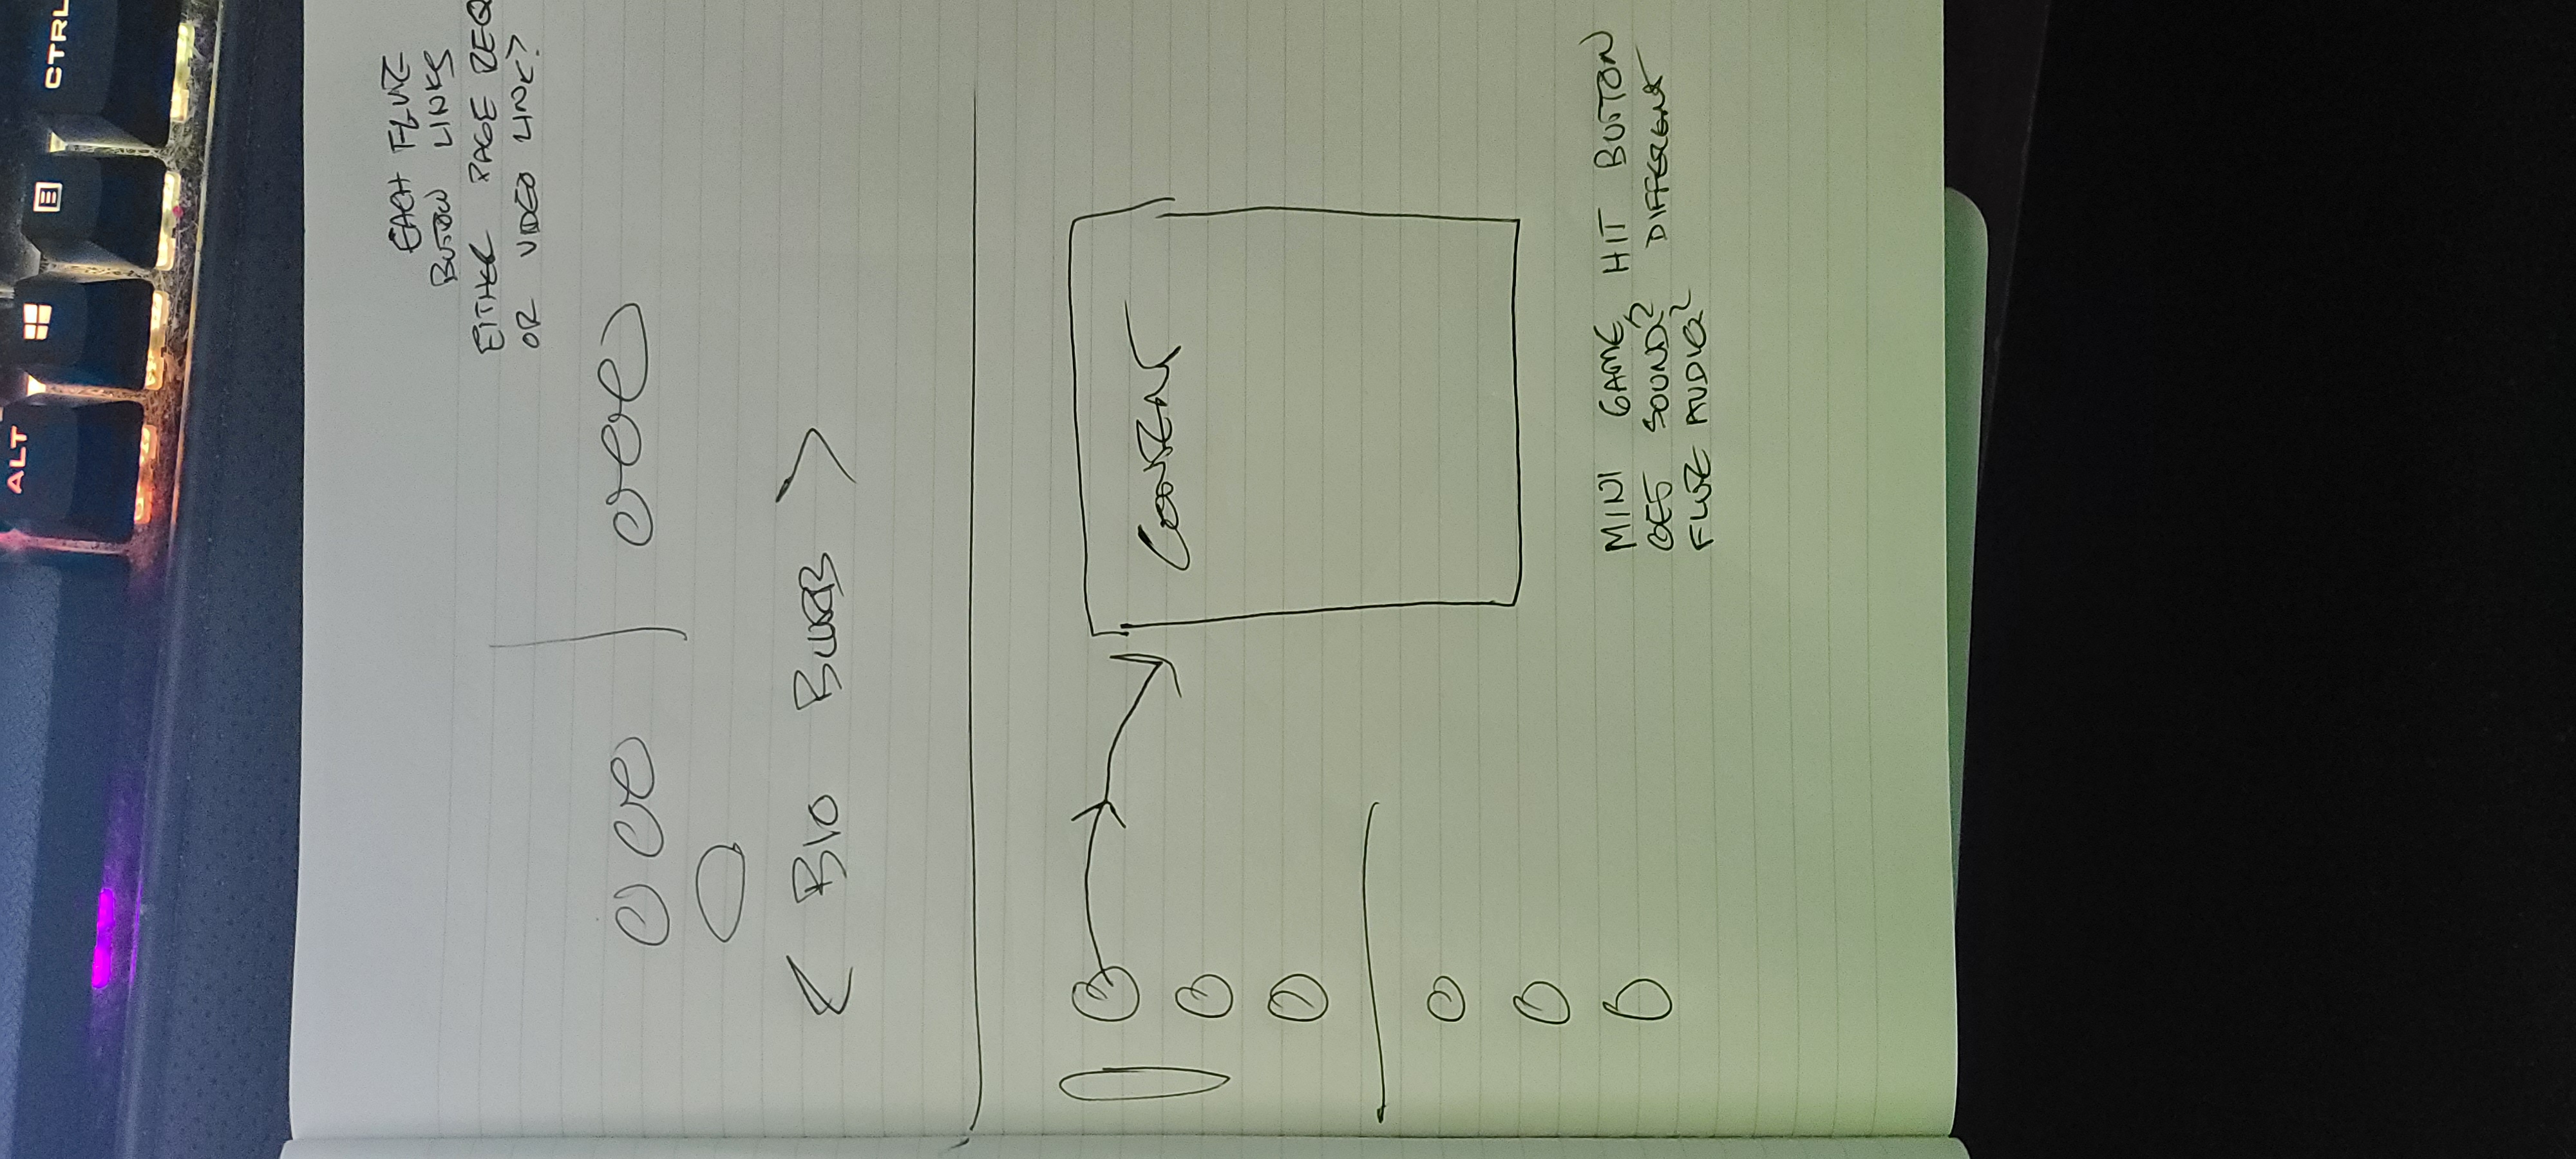 ALT
CTRL
EACH FLUTE
BUTTON LINKS
EITHER PAGE REQ
OR VIDEO LINK?
< BIO BLURB >
CONTENT
MINI GAME, HIT BUTTON
GET SOUND? DIFFERENT
FLUTE AUDIO?